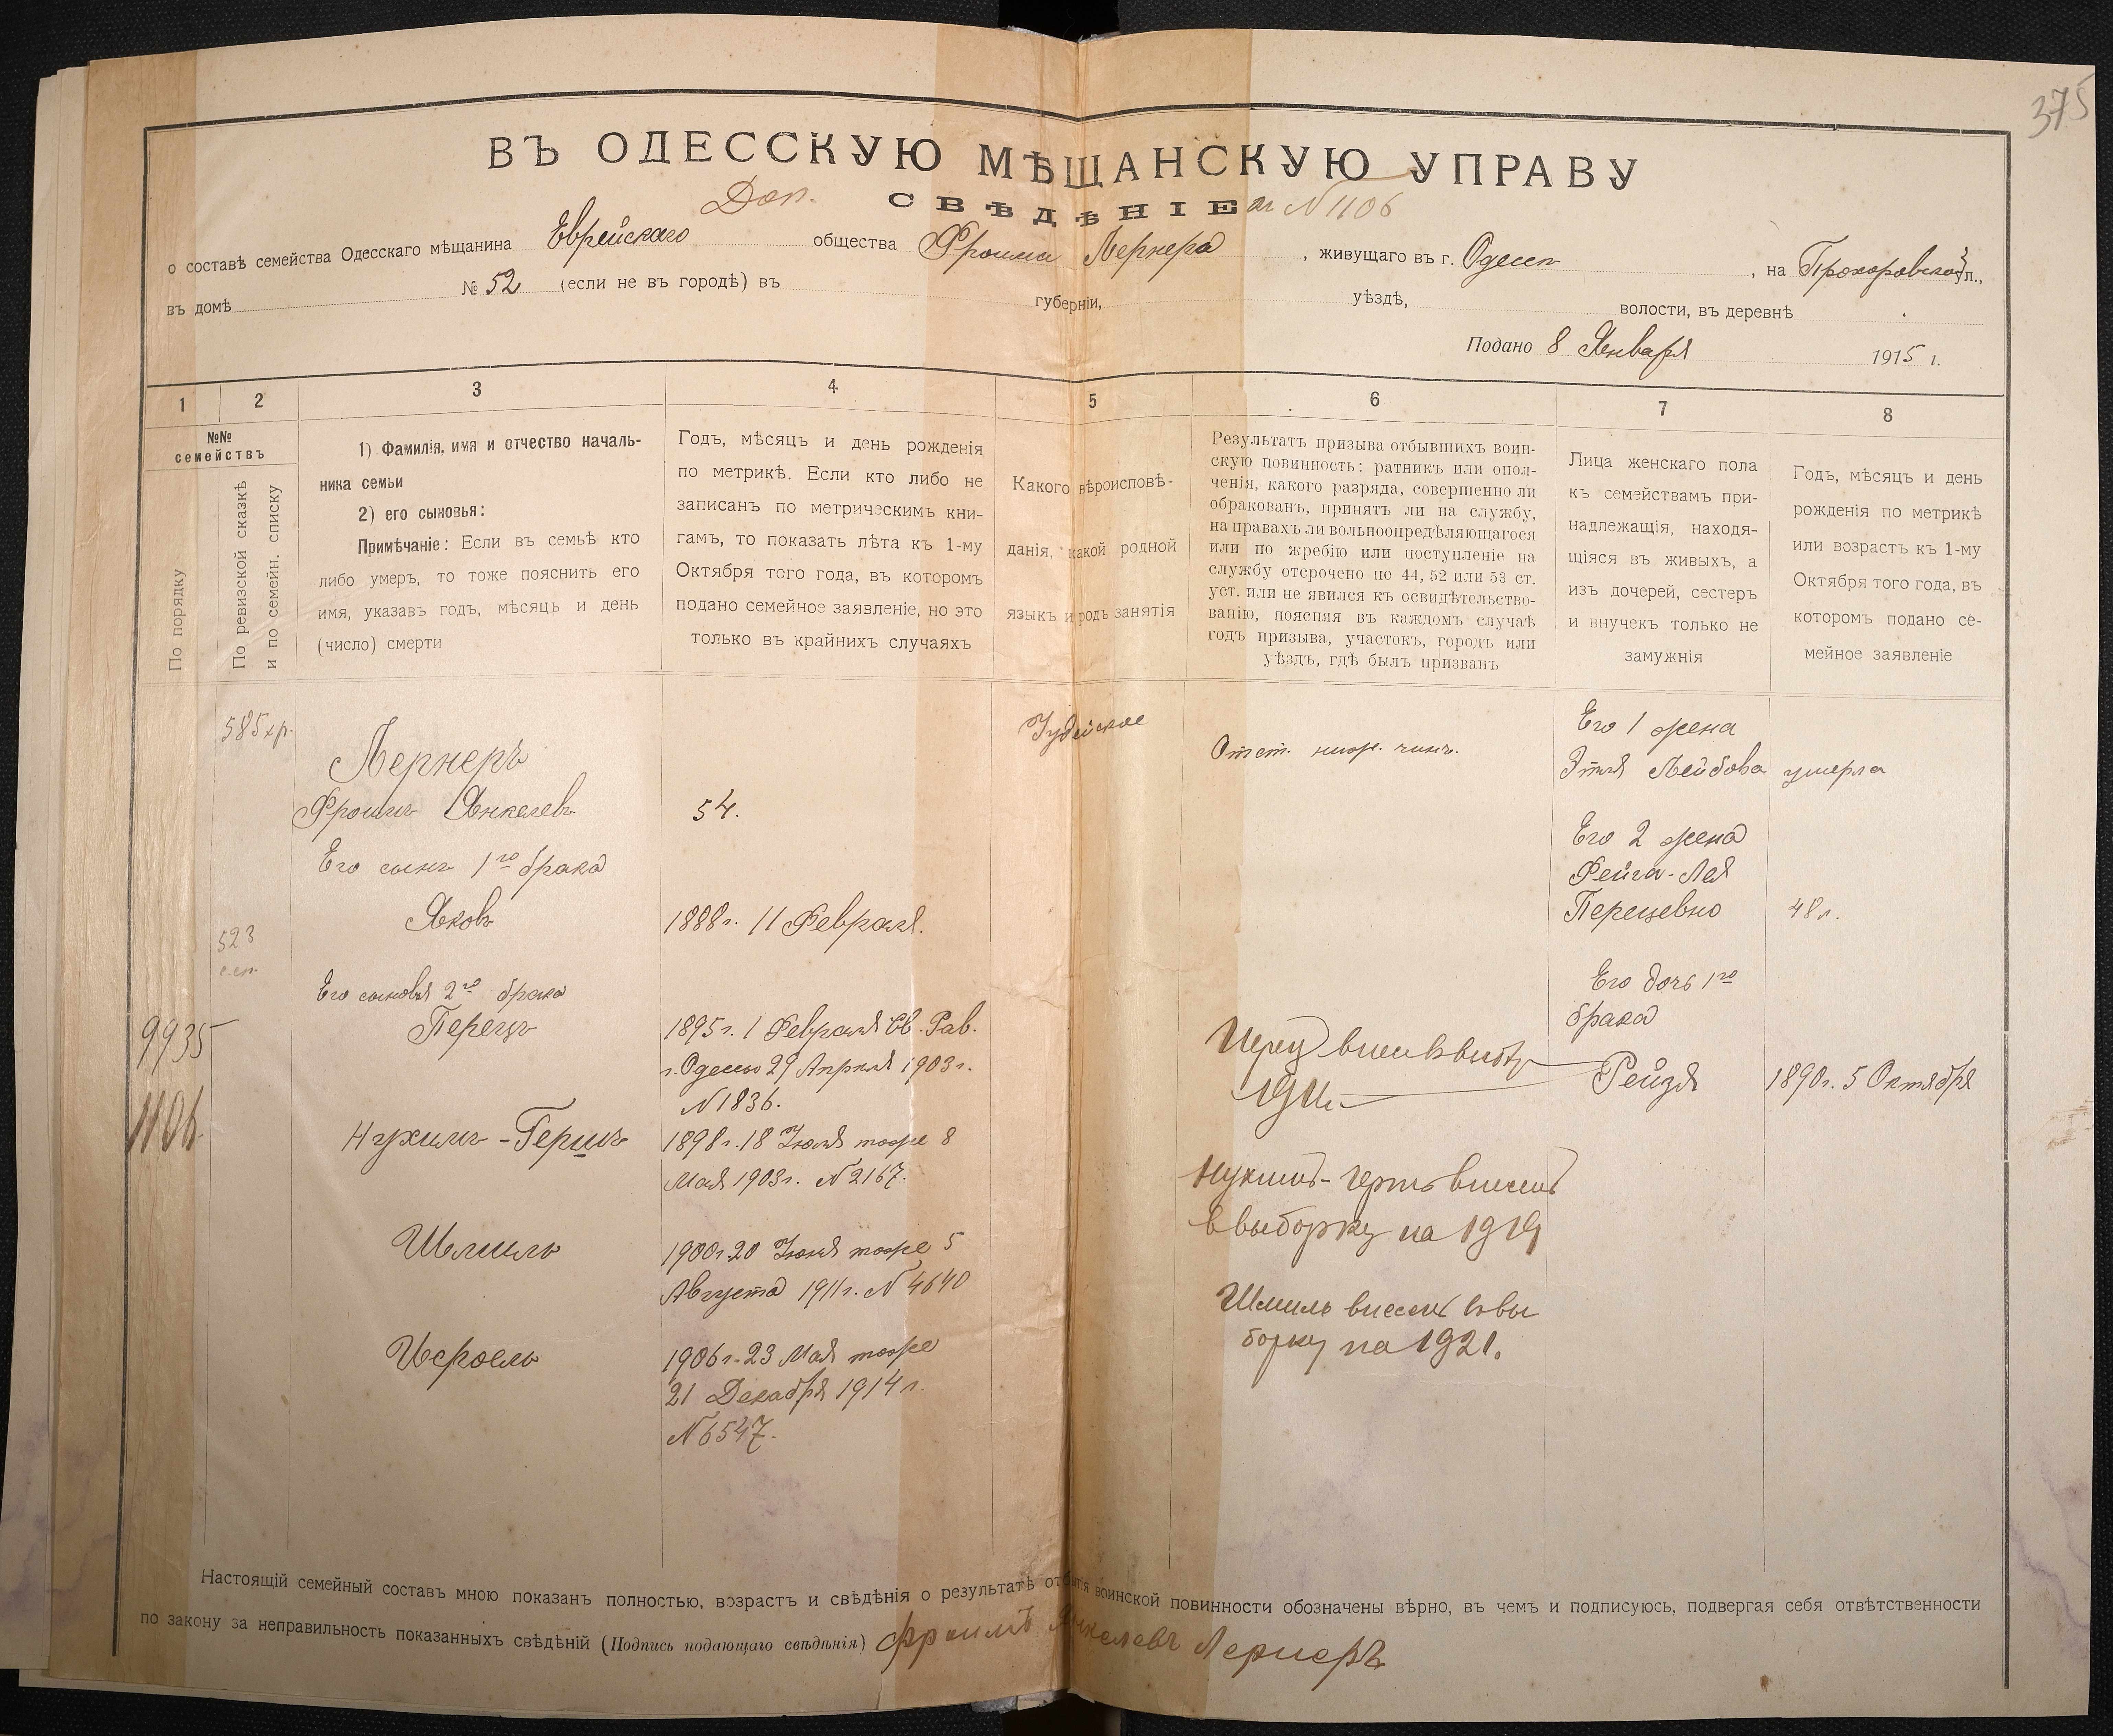 375
ВЪ ОДЕССКУЮ МѢЩАНСКУЮ УПРАВУ
Доп. СВѢДѢНІЕ № 1106
о составѣ семейства Одесскаго мѣщанина Еврейскаго общества Фроима Лернера, живущаго въ г. Одессѣ, на Прохоровской ул.,
въ домѣ № 52 (если не въ городѣ) въ губерніи, уѣздѣ, волости, въ деревнѣ
Подано 8 Января 1915 г.
1 2 3 4 5 6 7 8
№№
семействъ
По порядку
По ревизской сказкѣ
и по семейн. списку
1) Фамилія, имя и отчество началь-
ника семьи
2) его сыновья:
Примѣчаніе: Если въ семьѣ кто
либо умеръ, то тоже пояснить его
имя, указавъ годъ, мѣсяцъ и день
(число) смерти
Годъ, мѣсяцъ и день рожденія
по метрикѣ. Если кто либо не
записанъ по метрическимъ кни-
гамъ, то показать лѣта къ 1-му
Октября того года, въ которомъ
подано семейное заявленіе, но это
только въ крайнихъ случаяхъ
Какого вѣроисповѣ-
данія, какой родной
языкъ и родъ занятія
Результатъ призыва отбывшихъ воин-
скую повинность: ратникъ или опол-
ченія, какого разряда, совершенно ли
обракованъ, принятъ ли на службу,
на правахъ ли вольноопредѣляющагося
или по жребію или поступленіе на
службу отсрочено по 44, 52 или 53 ст.
уст. или не явился къ освидѣтельство-
ванію, поясняя въ каждомъ случаѣ
годъ призыва, участокъ, городъ или
уѣздъ, гдѣ былъ призванъ
Лица женскаго пола
къ семействамъ при-
надлежащія, находя-
щіяся въ живыхъ, а
изъ дочерей, сестеръ
и внучекъ только не
замужнія
Годъ, мѣсяцъ и день
рожденія по метрикѣ
или возрастъ къ 1-му
Октября того года, въ
которомъ подано се-
мейное заявленіе
585 хр.
523
с.сп.
9935
1106.
Лернеръ
Фроимъ Янкелевъ
Его сынъ 1го брака
Яковъ
Его сыновья 2го брака
Перецъ
Нухимъ-Гершъ
Шмиль
Исроель
54.
1888 г. 11 Февраля.
1895 г. 1 Февраля Св. Рав.
г. Одессы 29 Апреля 1903 г.
№ 1836.
1898 г. 18 Іюля тоже 8
Мая 1903 г. № 2167.
1900 г. 20 Іюня тоже 5
Августа 1911 г. № 4640
1906 г. 23 Мая тоже
21 Декабря 1914 г.
№ 6547.
Іудейское
Отст. ниж. чинъ.
Нухимъ-Гершъ внесенъ
в выборку на 1919
Шмиль внесен в вы
борку на 1921.
Его 1 жена
Этля Лейбова умерла
Его 2 жена
Фейга-Лея
Перецевна 48 л.
Его дочь 1го
брака
Рейзя 1890 г. 5 Октября
Настоящій семейный составъ мною показанъ полностью, возрастъ и свѣдѣнія о результатѣ отбытія воинской повинности обозначены вѣрно, въ чемъ и подписуюсь, подвергая себя отвѣтственности
по закону за неправильность показанныхъ свѣдѣній (Подпись подающаго свѣдѣнія) Фроимъ Янкелевъ Лернеръ